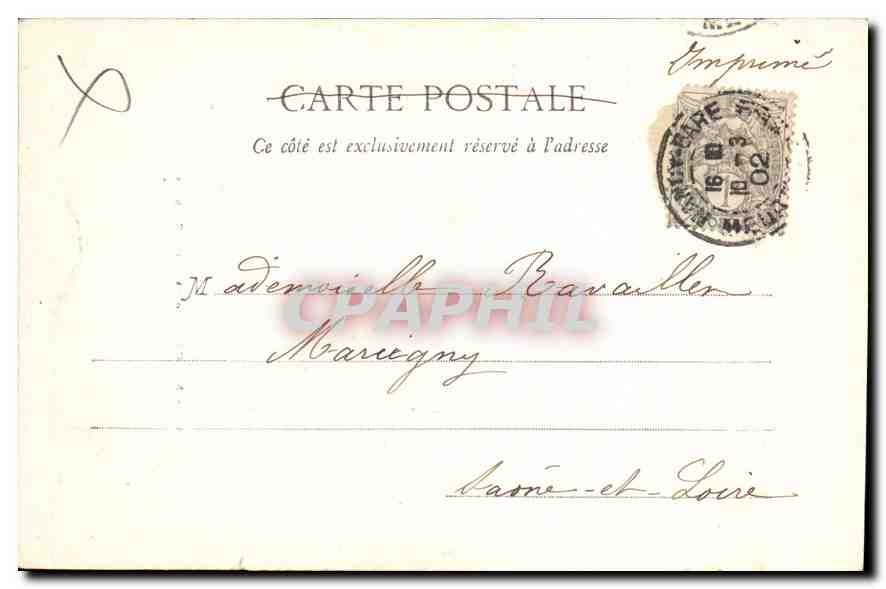 Imprimé
CARTE POSTALE
Ce côté est exclusivement réservé à l'adresse
NANCY-GARE
16 10
10 - 7 - 3
02
Mademoiselle Ravailler
CPAPHIL
Marcigny
Saône-et-Loire